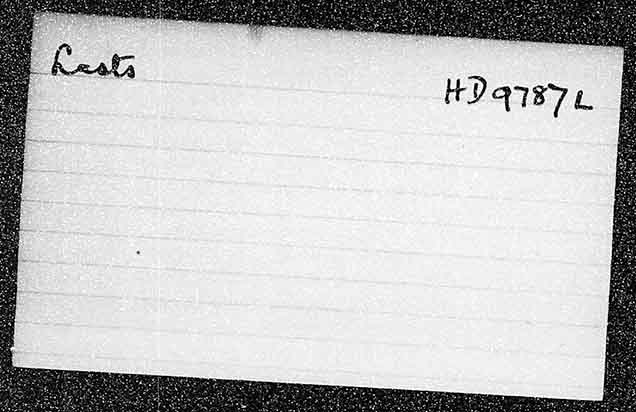 Lasts
HD9787L